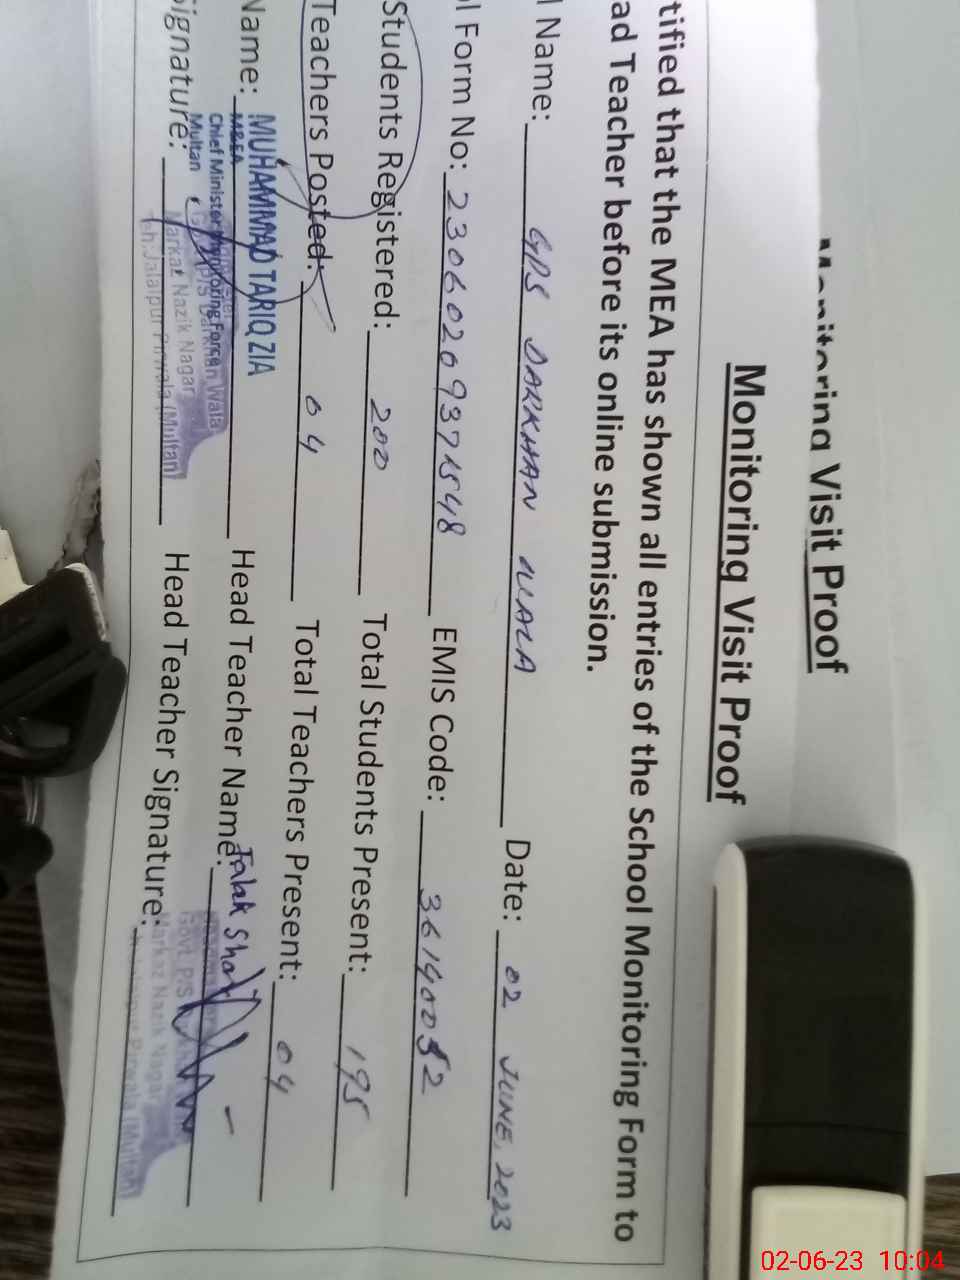 Monitoring Visit Proof
Monitoring Visit Proof
tified that the MEA has shown all entries of the School Monitoring Form to
ad Teacher before its online submission.
l Name: GPS DARKHAN WALA Date: 02 JUNE, 2023
l Form No: 23060209371548 EMIS Code: 36140052
Students Registered: 200 Total Students Present: 195
Teachers Posted: 04 Total Teachers Present: 04
Name: MUHAMMAD TARIQ ZIA Head Teacher Name:
MEA
Chief Minister Monitoring Force
Multan
P/S Darkhan Wala
Markaz Nazik Nagar
Teh:Jalalpur Pirwala (Multan)
Signature: Head Teacher Signature:
Govt. P/S
Markaz Nazik Nagar
Jalalpur Pirwala (Multan)
02-06-23 10:04